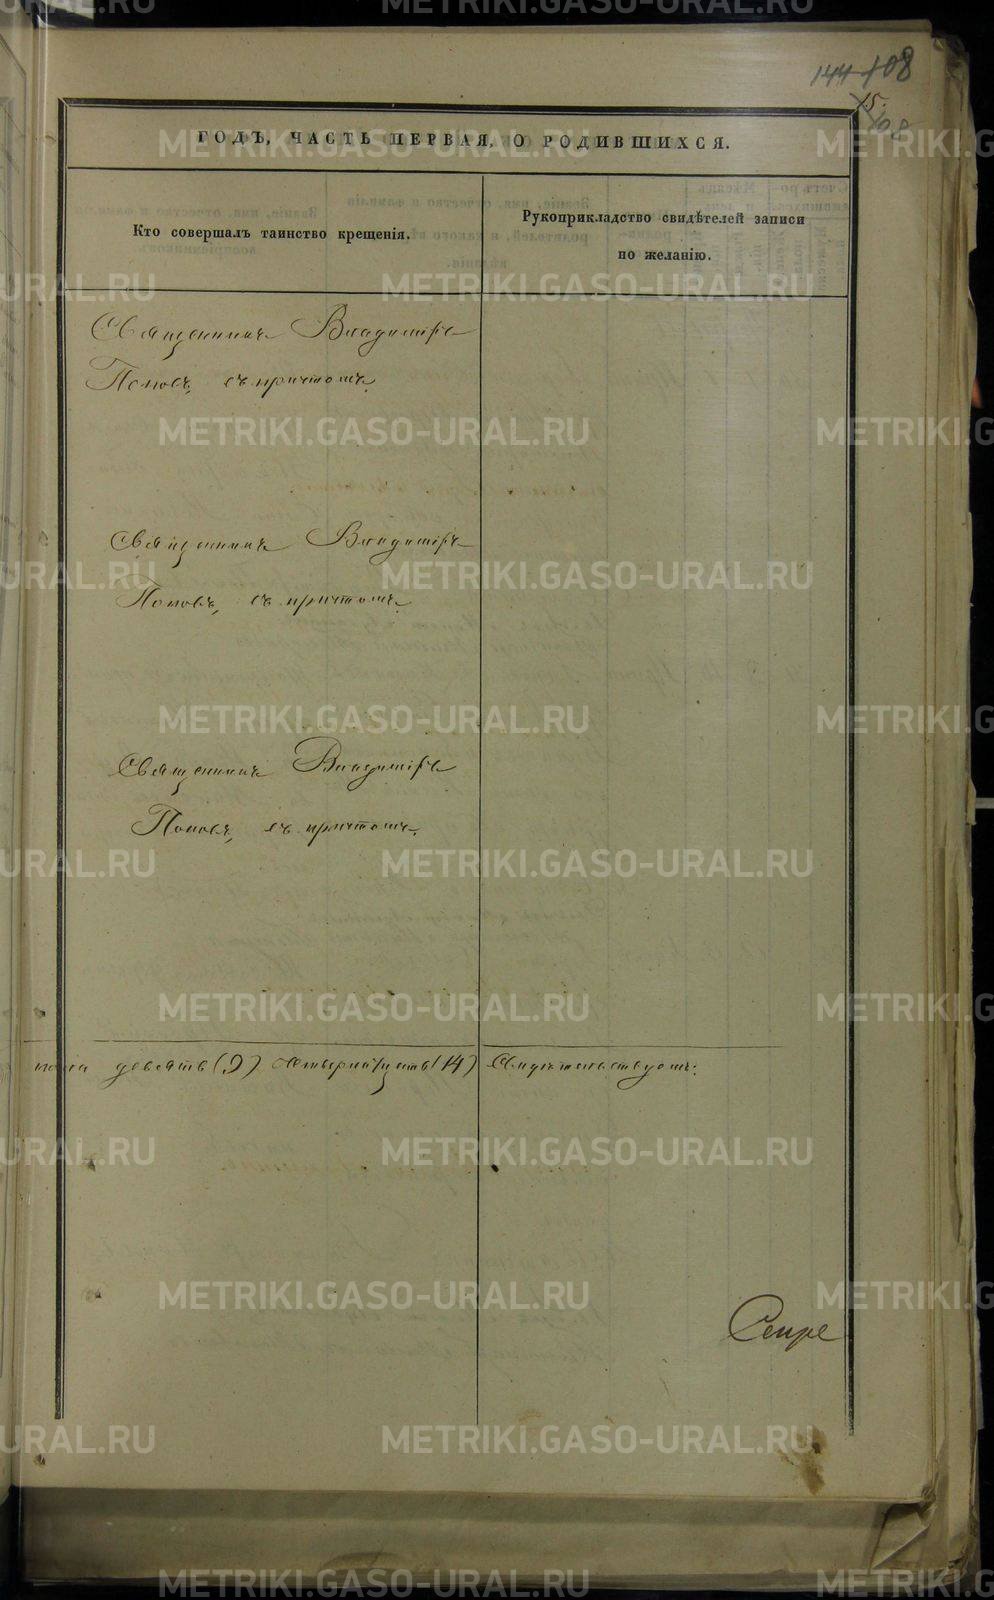 144 108
15.
108
ГОДЪ, ЧАСТЬ ПЕРВАЯ, О РОДИВШИХСЯ.
Кто совершалъ таинство крещенія.
Рукоприкладство свидѣтелей записи
по желанію.
Священникъ Владиміръ
Поповъ, съ причтомъ.
Священникъ Владиміръ
Поповъ, съ причтомъ.
Священникъ Владиміръ
Поповъ, съ причтомъ.
пола девять (9) четырнадцать (14) Свидѣтельствуемъ:
METRIKI.GASO-URAL.RU